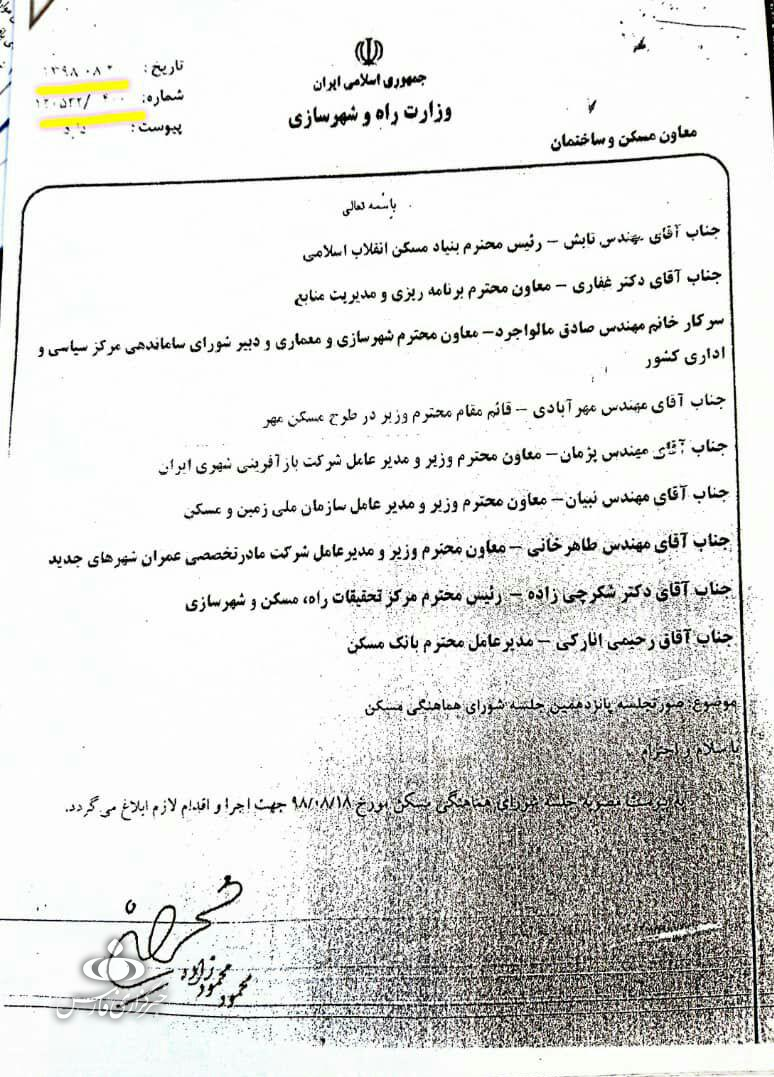 جمهوری اسلامی ایران
وزارت راه و شهرسازی
معاون مسکن و ساختمان
تاریخ:
شماره: ۱۲۰۵۲۲/۴۰۰
پیوست: دارد
باسمه تعالی
جناب آقای مهندس تابش – رئیس محترم بنیاد مسکن انقلاب اسلامی
جناب آقای دکتر غفاری – معاون محترم برنامه ریزی و مدیریت منابع
سرکار خانم مهندس صادق مالواجرد– معاون محترم شهرسازی و معماری و دبیر شورای ساماندهی مرکز سیاسی و
اداری کشور
جناب آقای مهندس مهرآبادی – قائم مقام محترم وزیر در طرح مسکن مهر
جناب آقای مهندس پژمان– معاون محترم وزیر و مدیر عامل شرکت بازآفرینی شهری ایران
جناب آقای مهندس نبیان– معاون محترم وزیر و مدیر عامل سازمان ملی زمین و مسکن
جناب آقای مهندس طاهرخانی – معاون محترم وزیر و مدیرعامل شرکت مادرتخصصی عمران شهرهای جدید
جناب آقای دکتر شکرچی زاده – رئیس محترم مرکز تحقیقات راه، مسکن و شهرسازی
جناب آقای رحیمی انارکی – مدیرعامل محترم بانک مسکن
موضوع: صورتجلسه پانزدهمین جلسه شورای هماهنگی مسکن
با سلام و احترام
به پیوست مصوبه جلسه شورای هماهنگی مسکن مورخ ۹۸/۰۸/۱۸ جهت اجرا و اقدام لازم ابلاغ می گردد.
محمود محمودزاده
خبرگزاری فارس